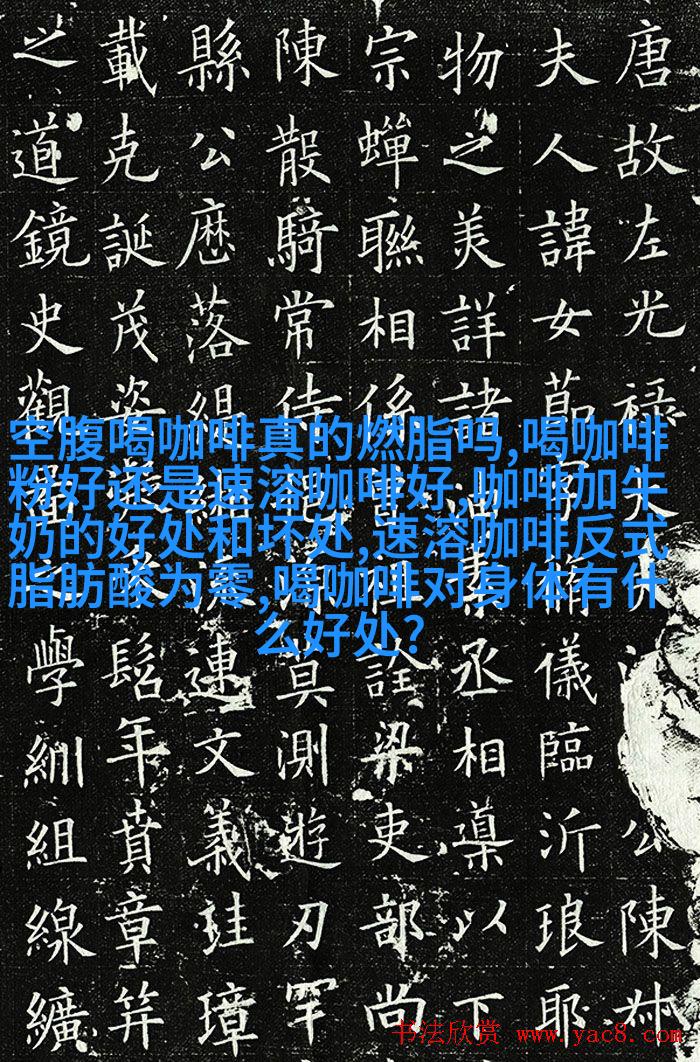 唐故左光禄公陳
夫人諱女節字脩儀臨沂琅耶
物之美詳諸油素丞相導以下
宗蟬聯相係祖詮梁吏部尚
陳散騎常侍莫測遊刃罕
縣公歷落緹連文義珪璋
載克誕茂姿髫年賁章笄
之道鏡史觀學紃組線纊
空腹喝咖啡真的燃脂吗,喝咖啡
粉好还是速溶咖啡好,咖啡加牛
奶的好处和坏处,速溶咖啡反式
脂肪酸为零,喝咖啡对身体有什
么好处?
书法欣赏 www.yac8.com